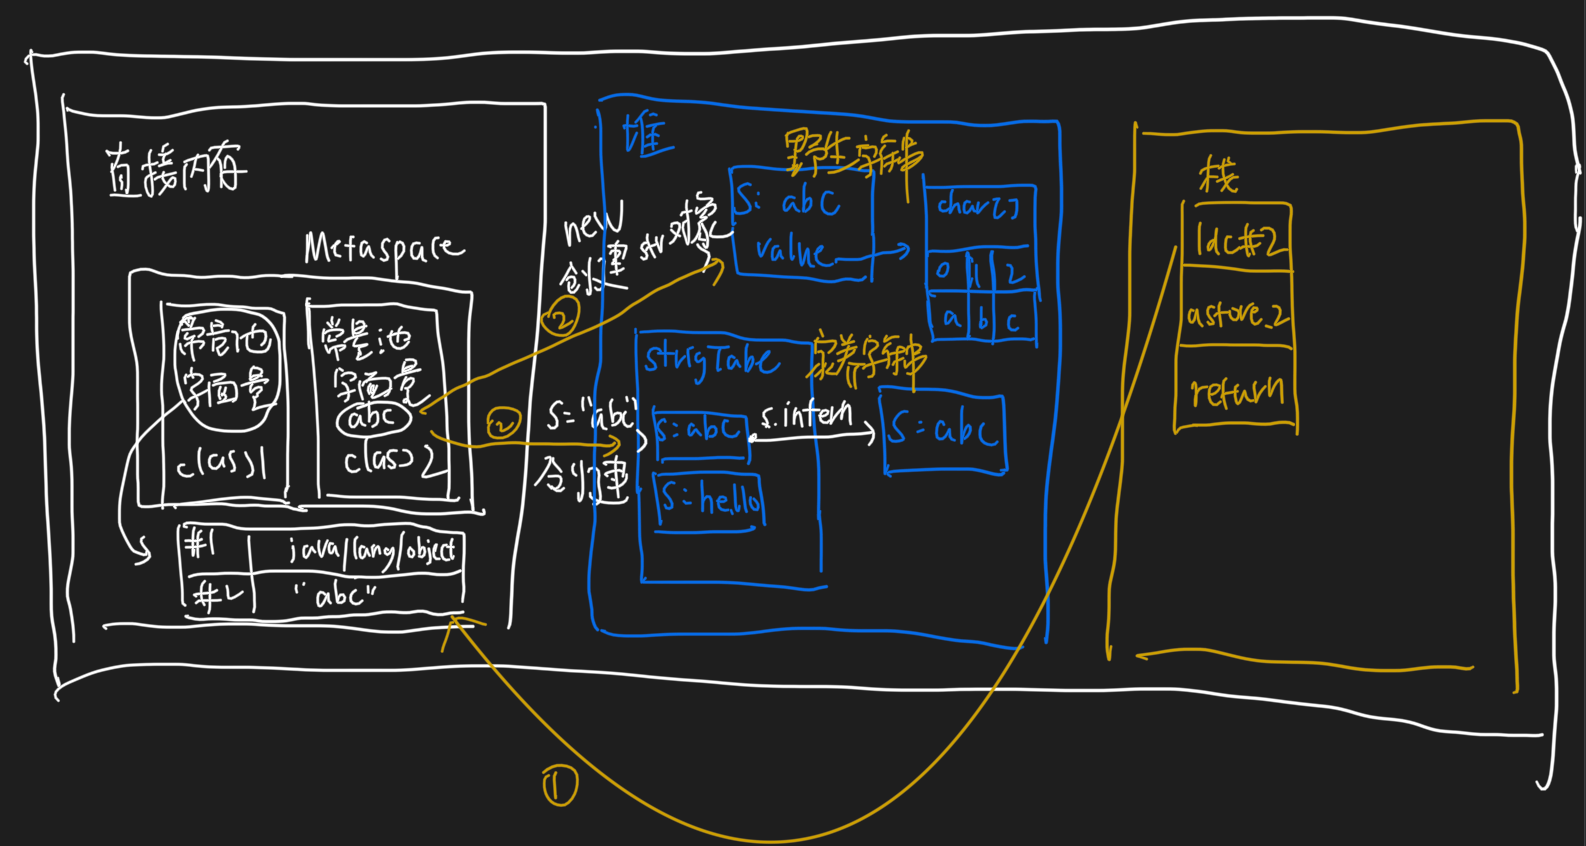 直接内存
Metaspace
常量池
字面量
class1
常量池
字面量
abc
class2
#1 java/lang/object
#2 "abc"
①
new
创建
str对象
②
②
s="abc"
会创建
堆
野生字符串
S: abc
value
char[]
0 1 2
a b c
strigTabe
家养字符串
s:abc
s.intern
S:abc
S:hello
栈
ldc#2
astore_2
return